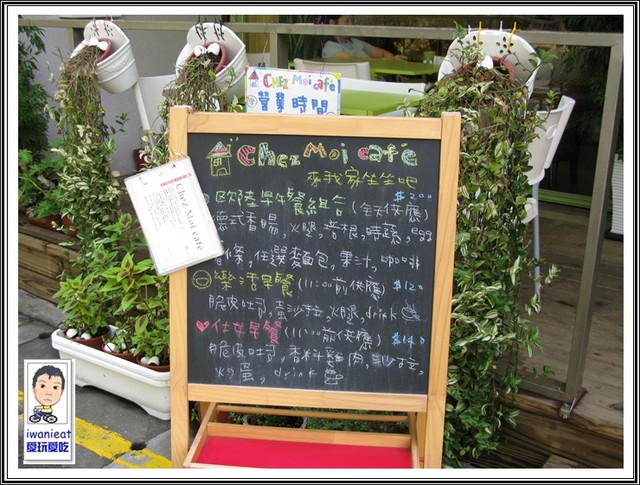 CHEZ Moi café
營業時間
Chez Moi café
來我家坐坐吧
歐陸早午餐組合 (全天供應) $200
德式香腸, 火腿, 培根, 時蔬, egg
薯條, 任選麵包, 果汁, 咖啡
樂活早餐 (11:00前供應) $120
脆皮吐司, 蛋沙拉, 火腿, drink
仕女早餐 (11:00前供應) $140
脆皮吐司, 香料雞肉, 沙拉,
蛋, drink
Chez Moi café
iwanieat
愛玩愛吃